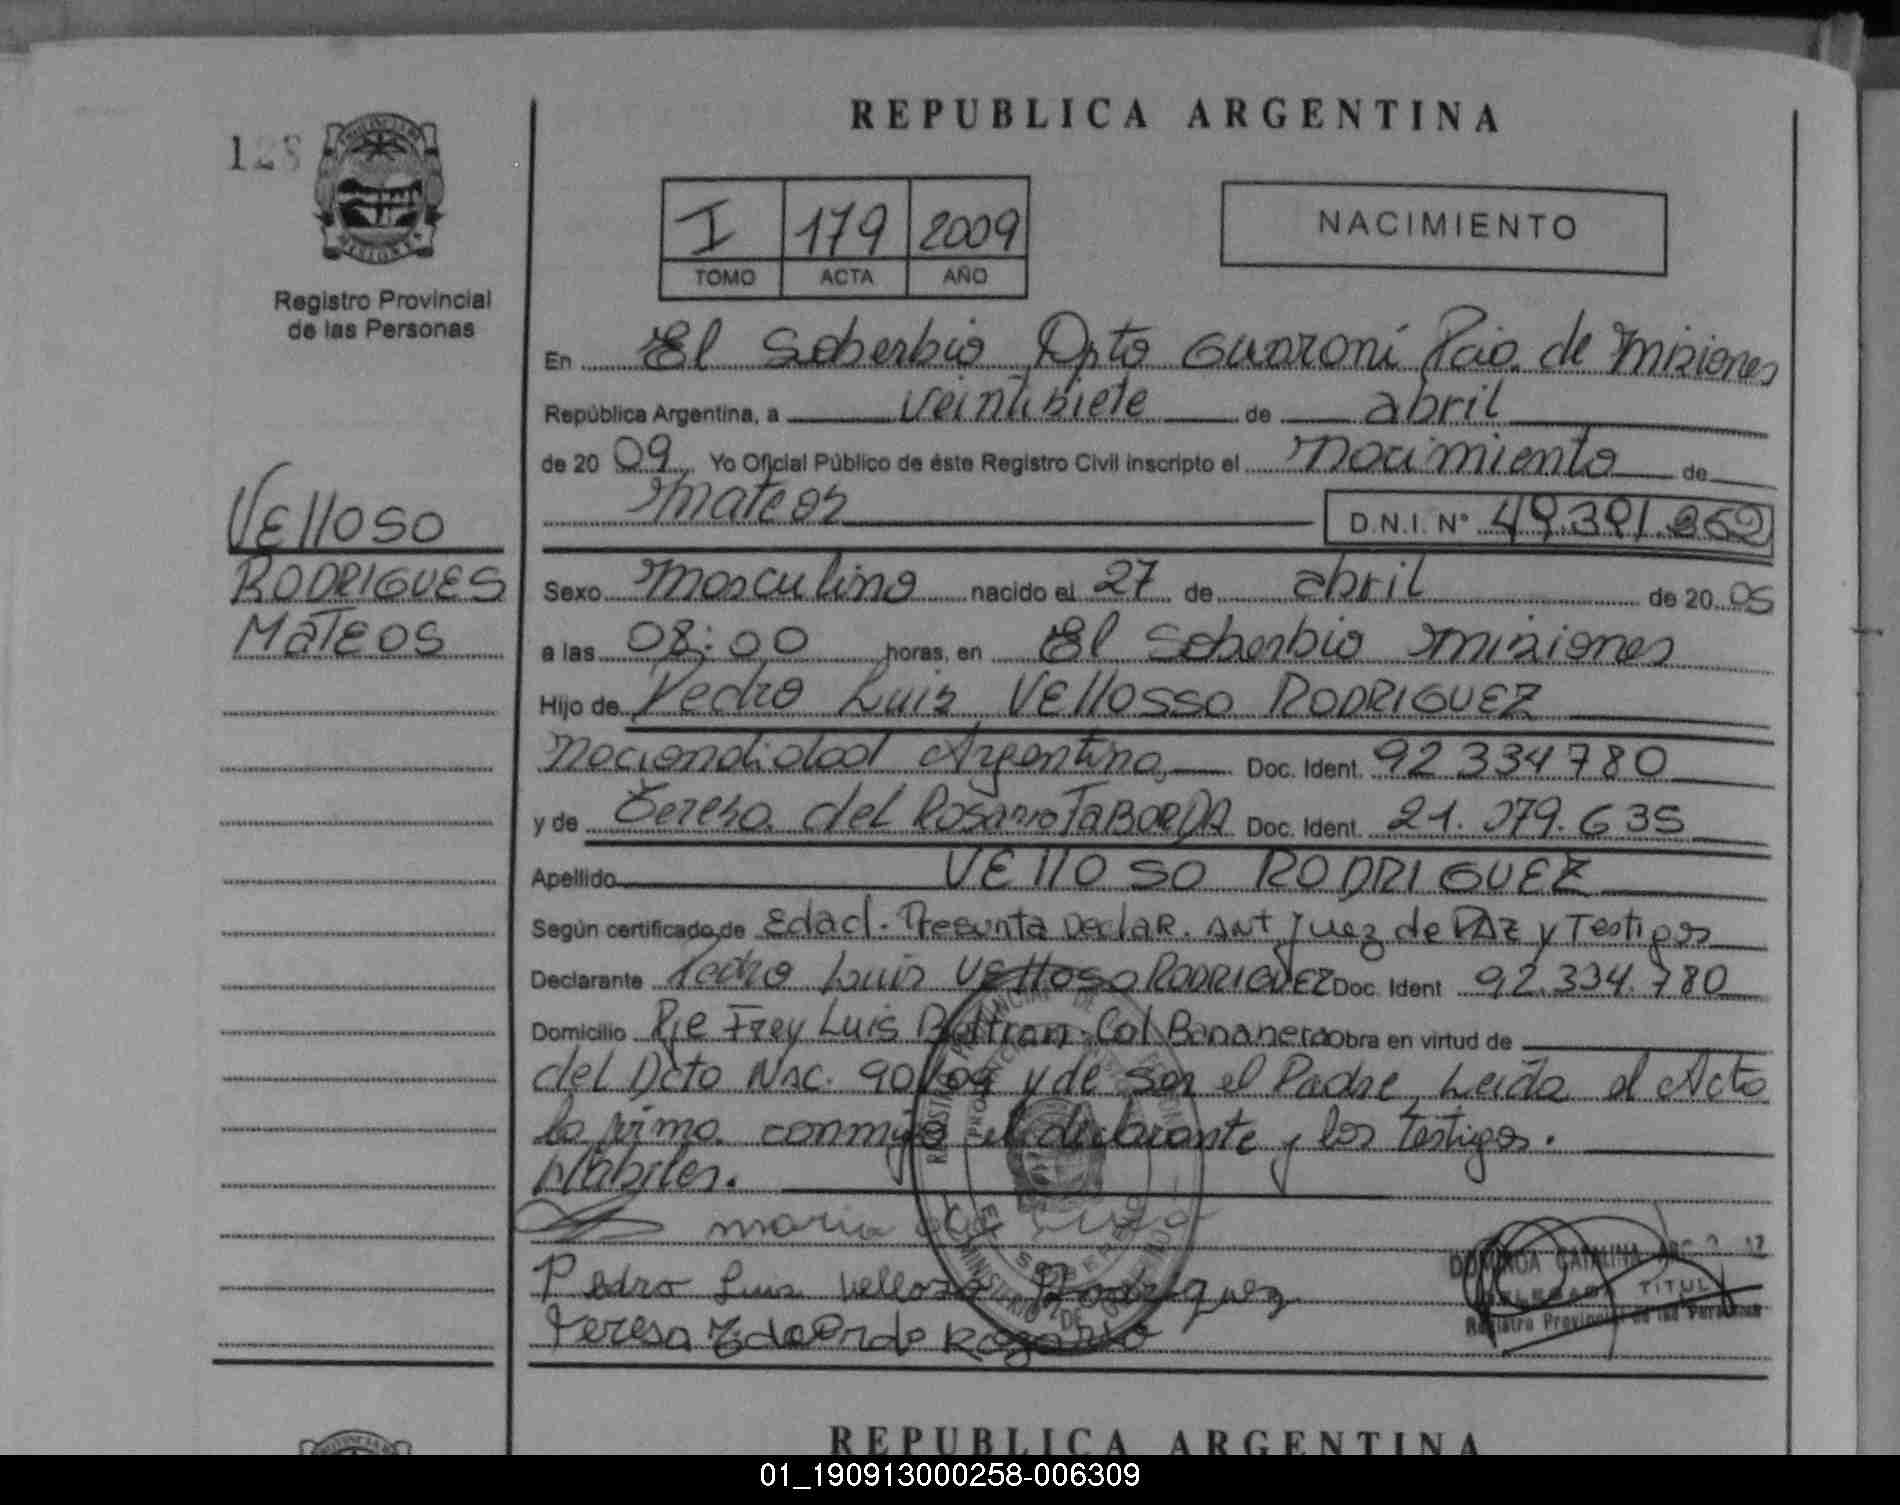 REPUBLICA ARGENTINA
128
PROVINCIA DE
MISIONES
Registro Provincial
de las Personas
NACIMIENTO
I 179 2009
TOMO ACTA AÑO
En El Soberbio Dpto Guaraní Pcia. de Misiones
República Argentina, a veintisiete de abril
de 20 09 Yo Oficial Público de éste Registro Civil inscripto el Nacimiento de
Mateos
D.N.I. N° 49.391.862
VEllOSO
RODRIGUES
MATEOS
Sexo Masculino nacido el 27 de abril de 20 05
a las 08:00 horas, en El Soberbio Misiones
Hijo de Pedro Luis VEllOSSO RODRIGUEZ
Nacionalidad Argentina, Doc. Ident. 92 334 780
y de Teresa del Rosario TABORDA Doc. Ident. 21.079.635
Apellido VEllOSO RODRIGUEZ
Según certificado de Edad. Presunta Declar. Ant Juez de PAZ y Testigos
Declarante Pedro Luis VEllOSO RODRIGUEZ Doc. Ident 92.334.780
Domicilio Pje Frey Luis Beltran-Col Bananera obra en virtud de
del Dcto Nac. 90/09 y de ser el Padre, Leída el Acta
la firma conmigo el declarante y los testigos.
Habiles.
maria
Pedro Luis Velloso Rodriguez
Teresa Rosario
DOMINGA CATALINA
DELEGADA TITUL
Registro Provincial de las Personas
REPUBLICA ARGENTINA
01_190913000258-006309